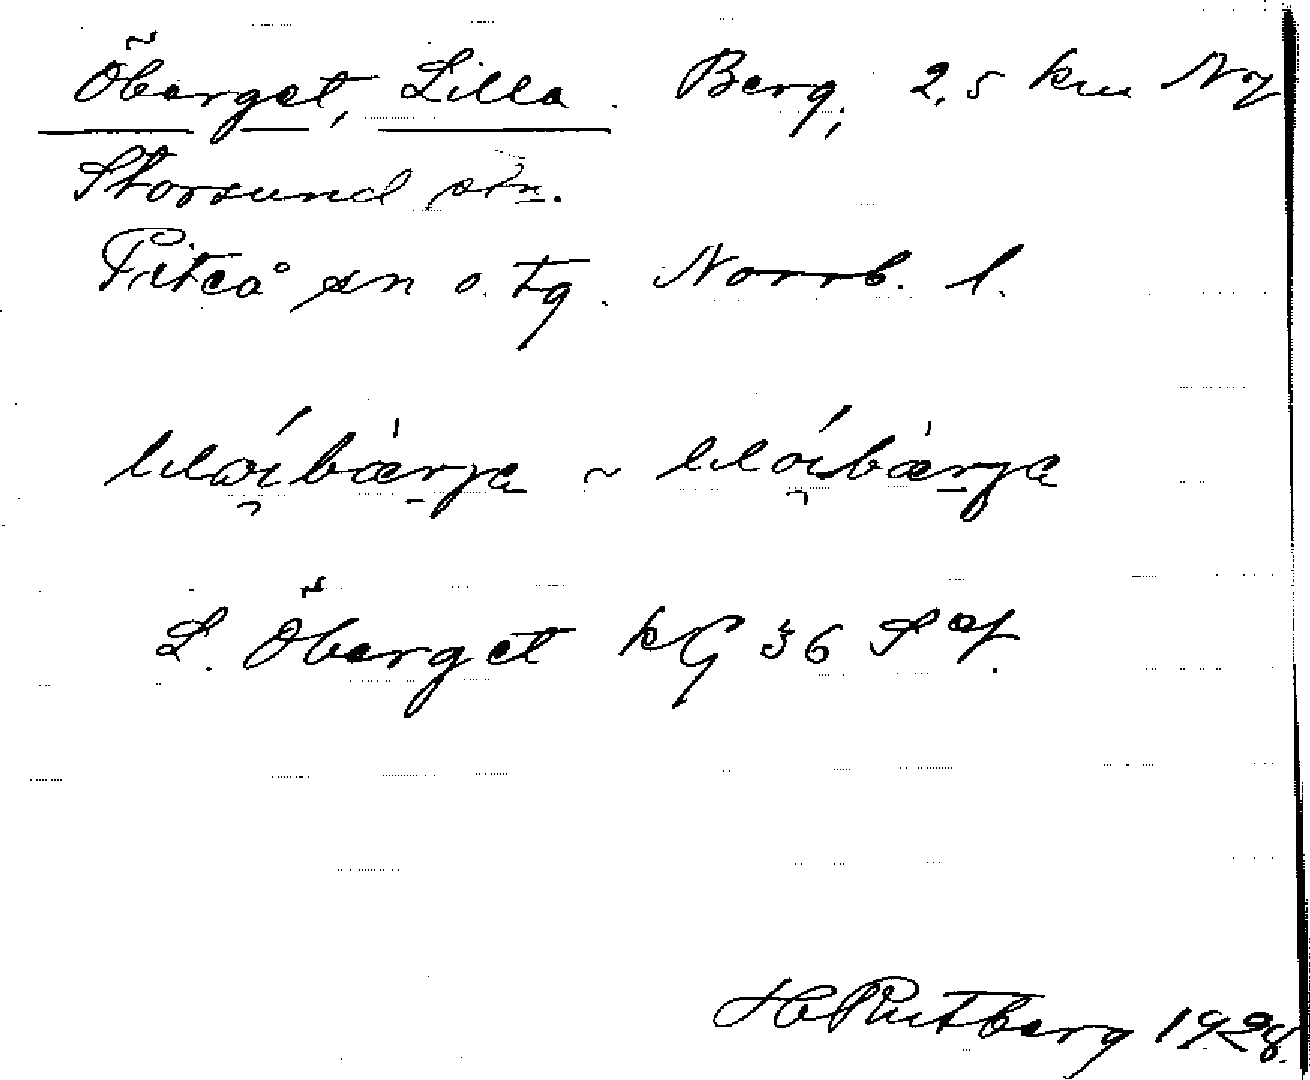 Öberget, Lilla. Berg, 2,5 km NV
Storsund stn.
Piteå sn o. tg. Norrb. l.
~
L. Öberget kG 36 S af.
H Rutberg 1928.